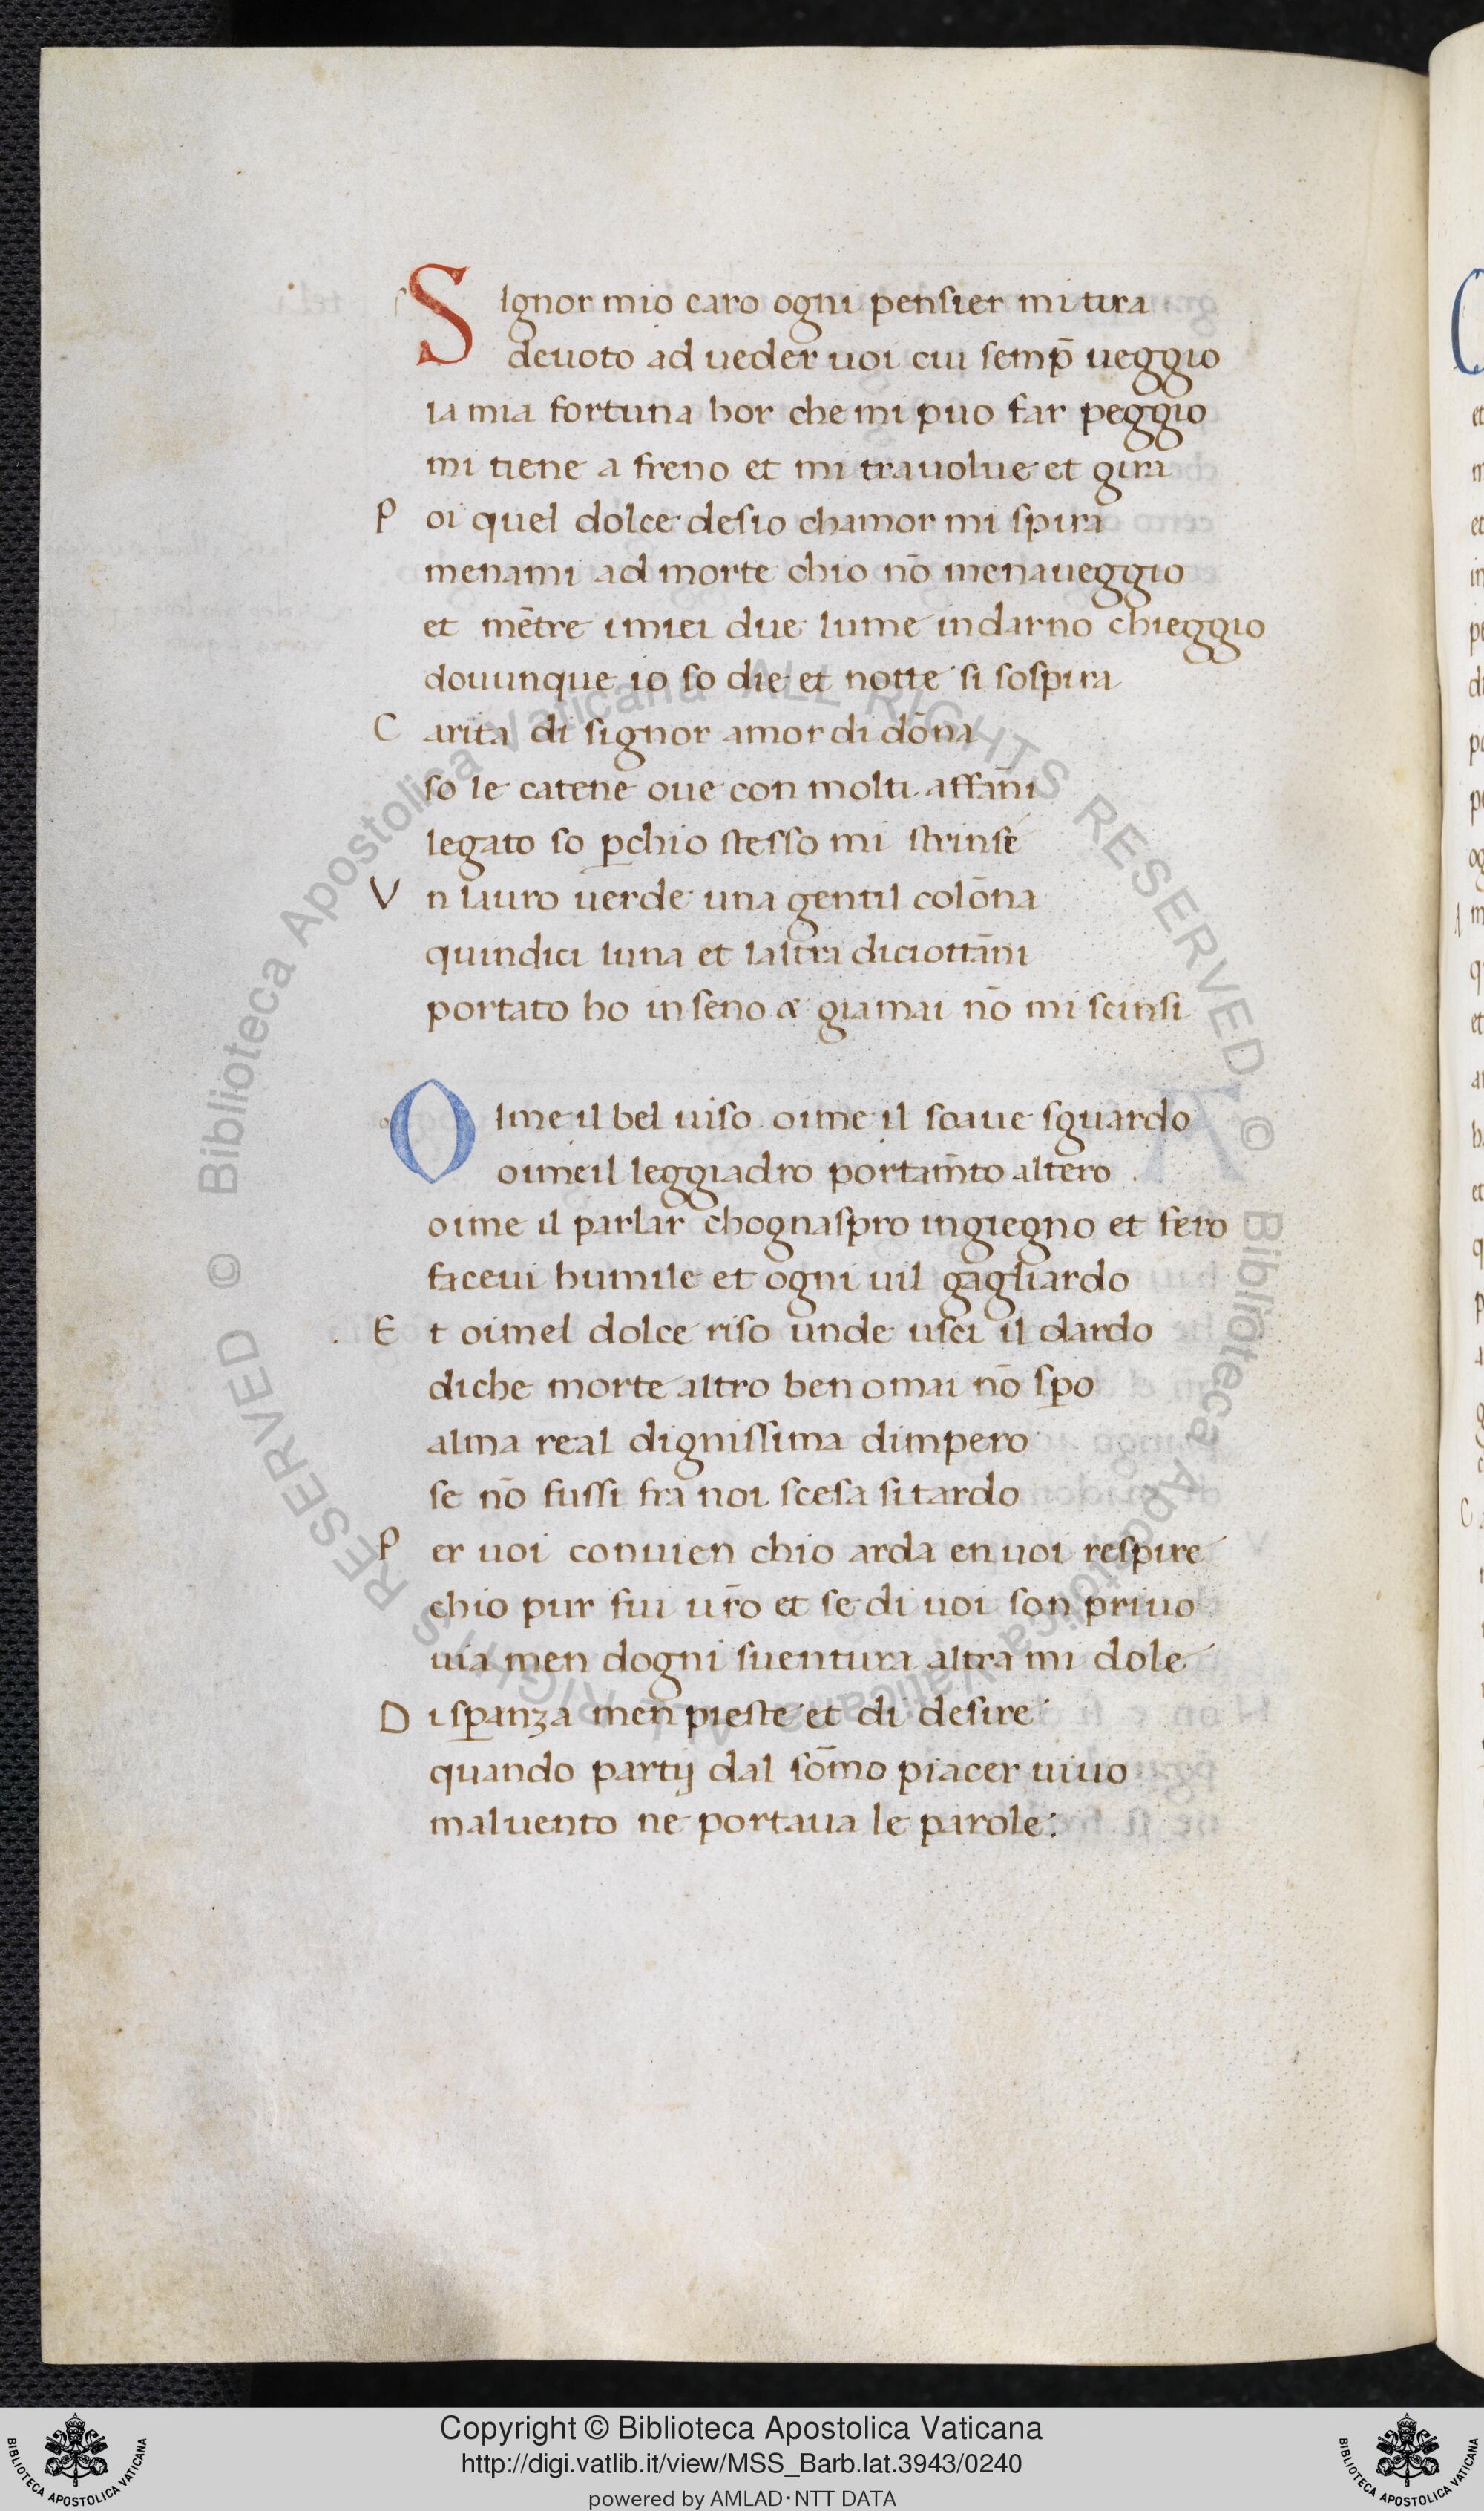 SIgnor mio caro ogni pensier mi tira
deuoto ad ueder uoi cui semp̄ ueggio
la mia fortuna hor che mi puo far peggio
mi tiene a freno et mi trauolue et gira
Poi quel dolce desio chamor mi spira
menami ad morte chio nō menaueggio
et mētre i miei due lume indarno chieggio
douunque io so die et notte si sospira
Carita di signor amor di dōna
so le catene oue con molti affāni
legato so ꝑchio stesso mi strinse
Vn lauro uerde una gentil colōna
quindici luna et laltra diciottāni
portato ho in seno & giamai nō mi scinsi
OIme il bel uiso oime il soaue sguardo
oimeil leggiadro portam̄to altero
oime il parlar chognaspro ingiegno et fero
faceui humile et ogni uil gagliardo
Et oimel dolce riso unde usci il dardo
diche morte altro ben omai nō sꝑo
alma real dignissima dimpero
se nō fussi fra noi scesa si tardo
Per uoi conuien chio arda en uoi respire
chio pur fui ur̄o et se di uoi son priuo
uia men dogni suentura altra mi dole
Di sꝑanza men pieste et di desire
quando partij dal sōmo piacer uiuo
maluento ne portaua le parole:
Copyright © Biblioteca Apostolica Vaticana
http://digi.vatlib.it/view/MSS_Barb.lat.3943/0240
powered by AMLAD·NTT DATA